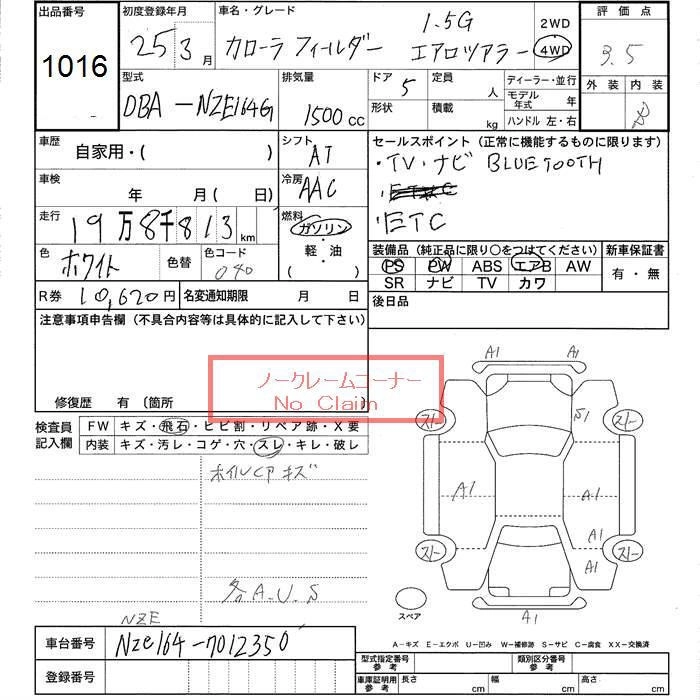 出品番号 初度登録年月 車名・グレード 評価点
1016 25 3月 カローラ フィールダー 1.5G エアロツアラー 2WD 4WD 3.5
型式 排気量 ドア 定員 ディーラー・並行 外装 内装
DBA-NZE164G 1500cc 5 人 モデル年式 年 B
形状 積載 kg ハンドル 左・右
車歴 自家用・( ) シフト AT セールスポイント (正常に機能するものに限ります)
・TV・ナビ BLUETOOTH
車検 年 月( 日) 冷房 AAC
・ETC
走行 19万8千813km 燃料 ガソリン・軽・油 ( )
色 ホワイト 色替 色コード 040
装備品 (純正品に限り〇をつけてください) 新車保証書
PS PW ABS エアB AW 有・無
SR ナビ TV カワ
R券 10,620円 名変通知期限 月 日 後日品
注意事項申告欄 (不具合内容等は具体的に記入して下さい)
ノークレームコーナー
No Claim
修復歴 有 (箇所 )
検査員記入欄 FW キズ・飛石・ヒビ割・リペア跡・X要
内装 キズ・汚レ・コゲ・穴・スレ・キレ・破レ
ホイルCAP キズ
各A.U.S
A1 A1
スレ S1 スレ
A1 A1
A1
スレ スレ
A1
A1
スペア
A-キズ E-エクボ U-凹み W-補修跡 S-サビ C-腐食 XX-交換済
NZE
車台番号 NZE164-7012350
登録番号
型式指定番号参考 類別区分番号参考
車庫証明用参考 長さ cm 幅 cm 高さ cm